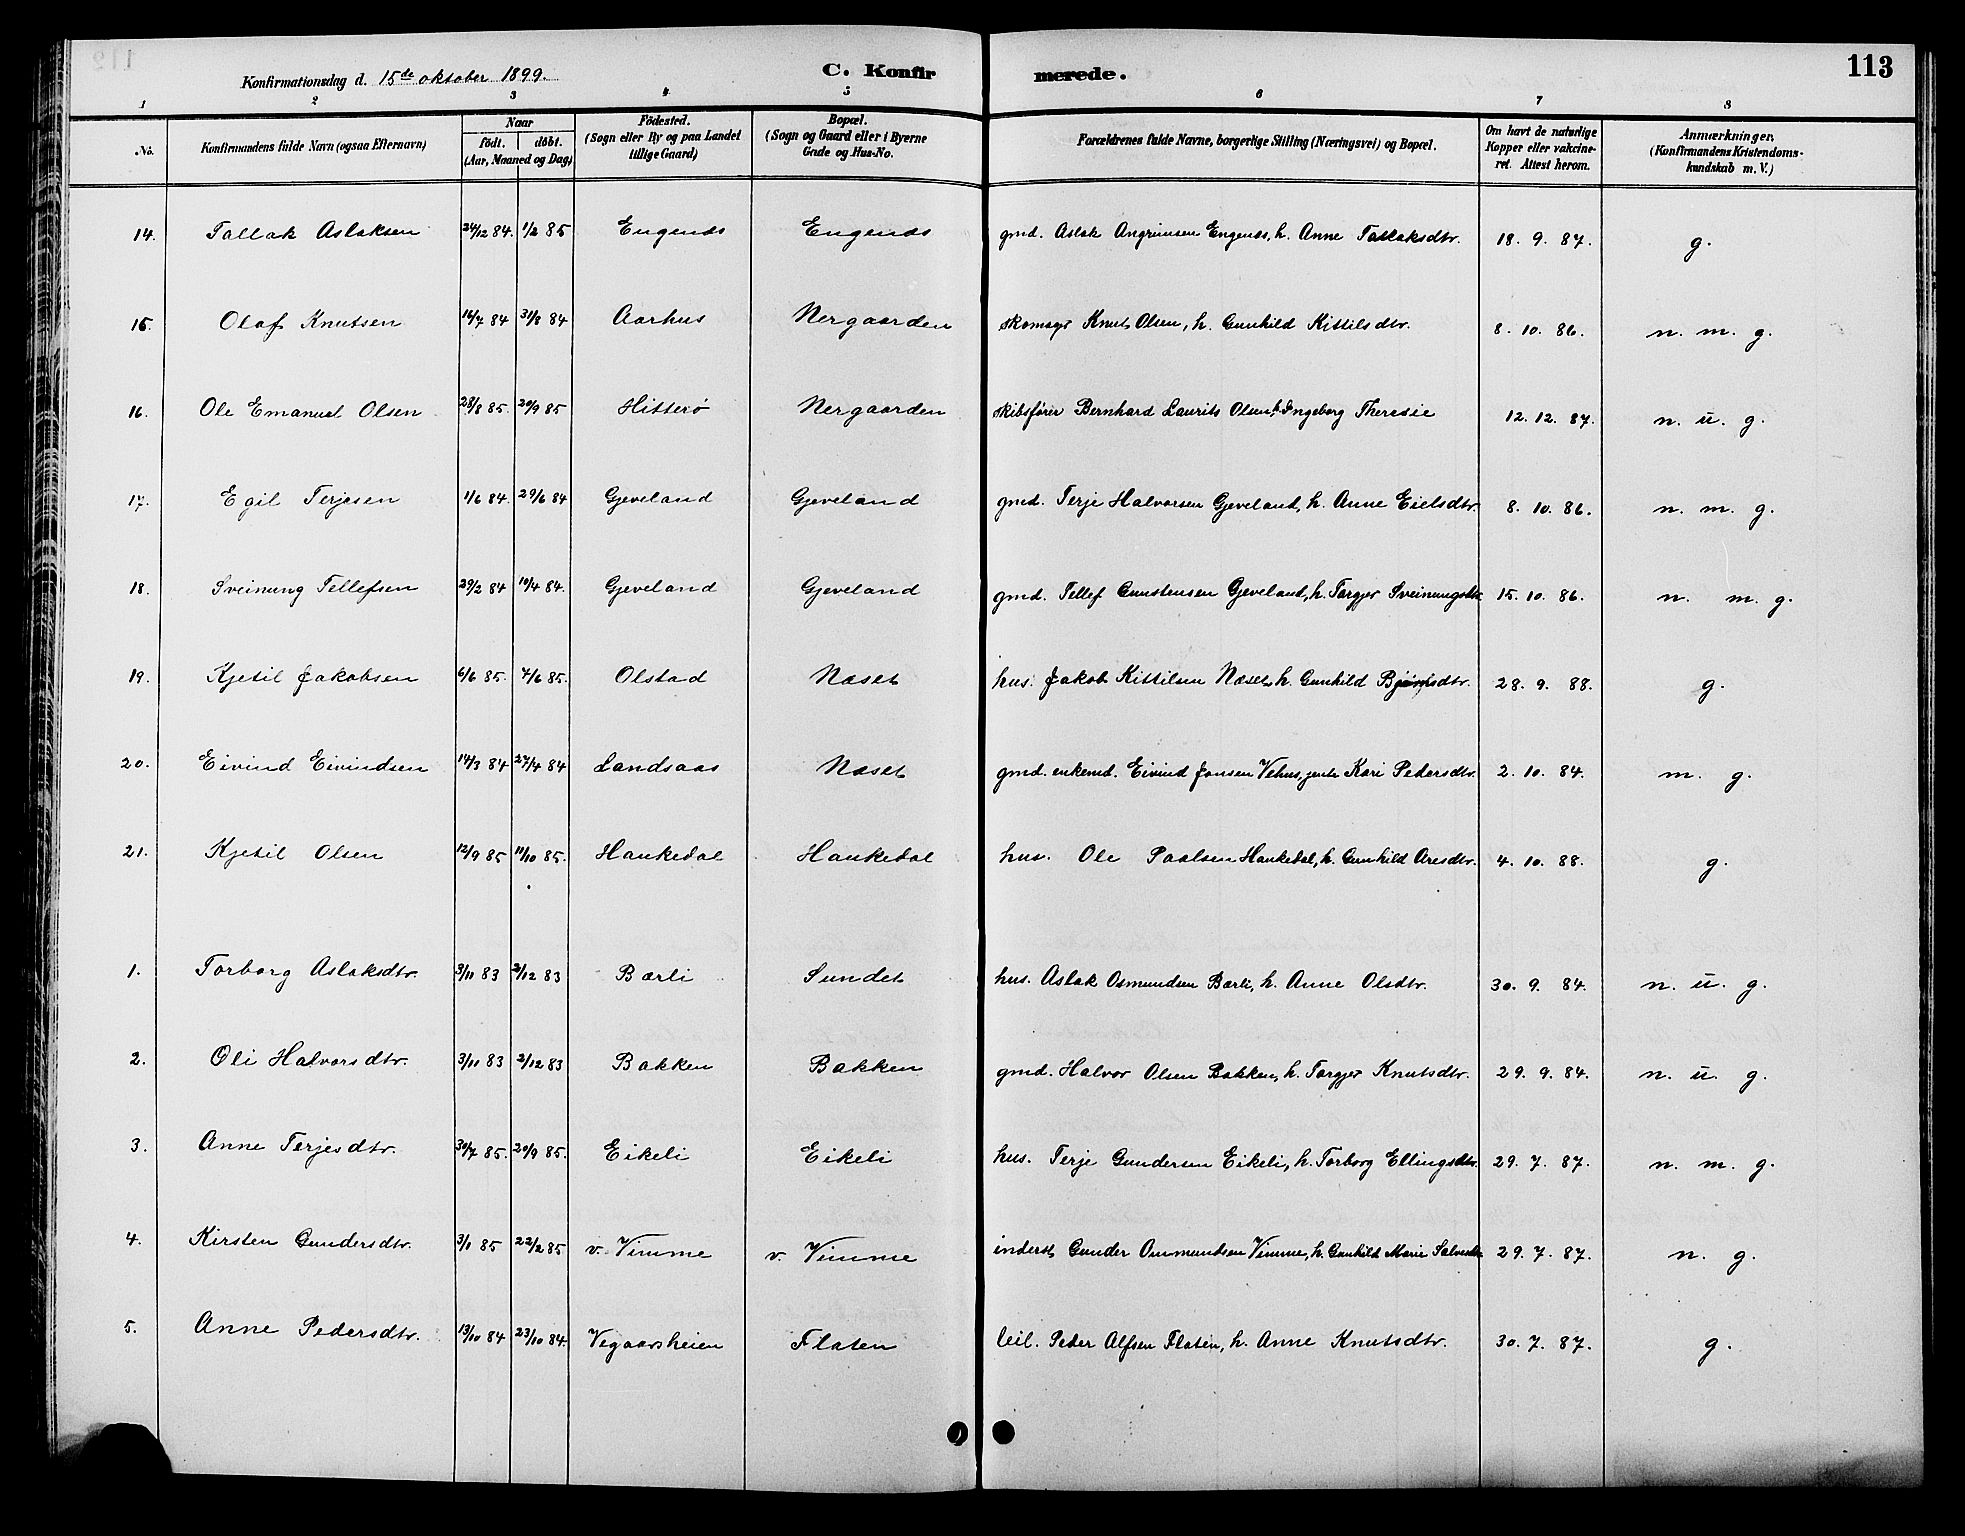 Konfirmationsdag d. 15de oktober 1899. C. Konfirmerede. 113
1 2 3 4 5 6 7 8
No. Konfirmandens fulde Navn (ogsaa Efternavn) Naar födt. döbt. (Aar, Maaned og Dag) Födested. (Sogn eller By og paa Landet tillige Gaard) Bopæl. (Sogn og Gaard eller i Byerne Gade og Hus-No. Forældrenes fulde Navne, borgerlige Stilling (Næringsvei) og Bopæl. Om havt de naturlige Kopper eller vakcineret. Attest herom. Anmærkninger. (Konfirmandens Kristendomskundskab m. V.)
14. Tallak Aslaksen 24/12 84. 1/2 85 Engenes Engenes gmd. Aslak Angrimsen Engenes, h. Anne Tallaksdtr. 18. 9. 87. g.
15. Olaf Knutsen 16/7 84 31/8 84 Aarhus Nergaarden skomagr Knut Olsen, h. Gunhild Kittilsdtr. 8. 10. 86. n. m. g.
16. Ole Emanuel Olsen 28/8 85. 20/9 85 Hitterö Nergaarden skibsfører Bernhard Laurits Olsen h. Ingeborg Theresie 12. 12. 87. n. u. g.
17. Egil Terjesen 1/6 84. 29/6 84 Gjeveland Gjeveland gmd. Terje Halvorsen Gjeveland, h. Anne Eielsdtr. 8. 10. 86. n. m. g.
18. Sveinung Tellefsen 29/2 84 10/4 84. Gjeveland Gjeveland gmd. Tellef Gunstensen Gjeveland, h. Torgjer Sveinungsdtr. 15. 10. 86. n. m. g.
19. Kjetil Jakobsen 6/6 85. 7/6 85. Olstad Næset hus. Jakob Kittilsen Næset h. Gunhild 28. 9. 88. g.
20. Eivind Eivindsen 14/3 84 27/4 84 Landsaas Næset gmd. enkemd. Eivind Jonsen Vehus, jente Kari Pedersdtr. 2. 10. 84. m. g.
21. Kjetil Olsen 12/9 85 11/10 85. Haukedal Haukedal hus. Ole Paalsen Haukedal, h. Gunhild Aresdtr. 4. 10. 88. g.
1. Torborg Aslaksdtr. 3/11 83 2/12 83 Bærli Sundet hus. Aslak Osmundsen Bærli, h. Anne Olsdtr. 30. 9. 84. n. u. g.
2. Oli Halvorsdtr. 3/11 83 2/12 83 Bakken Bakken gmd. Halvor Olsen Bakken, h. Torgjer Knutsdtr. 29. 9. 84. n. u. g.
3. Anne Terjesdtr. 30/7 85. 20/9 85. Eikeli Eikeli hus. Terje Gundersen Eikeli, h. Torborg Ellingsdtr. 29. 7. 87. n. m. g.
4. Kirsten Gundersdtr. 3/1 85 22/2 85 v. Vimme v. Vimme inderst Gunder Ommundsen Vimme, h. Gunhild Marie Salvesdtr. 29. 7. 87. n. g.
5. Anne Pedersdtr. 13/10 84 23/10 84. Vegaarsheien Flaten leil. Peder Alfsen Flaten, h. Anne Knutsdtr. 30. 7. 87. g.